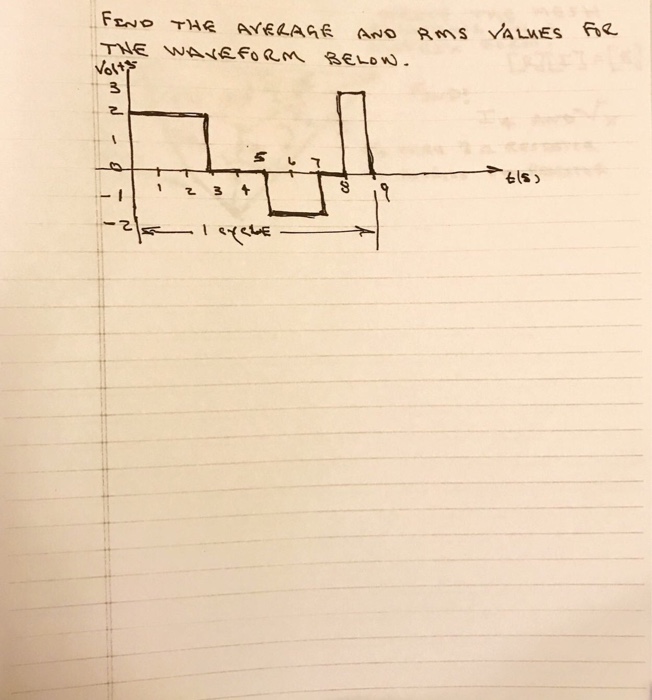 FIND THE AVERAGE AND RMS VALUES FOR
THE WAVEFORM BELOW.
Volts
3
2
1
0
-1
-2
1 2 3 4 5 6 7 8 9
t(s)
1 cycLE